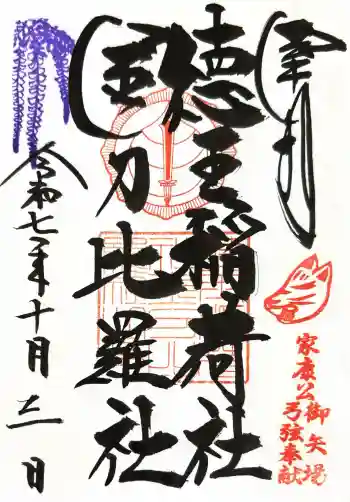 奉拝
徳王稲荷社
金刀比羅社
令和七年十月三日
家康公御矢場
弓弦奉献